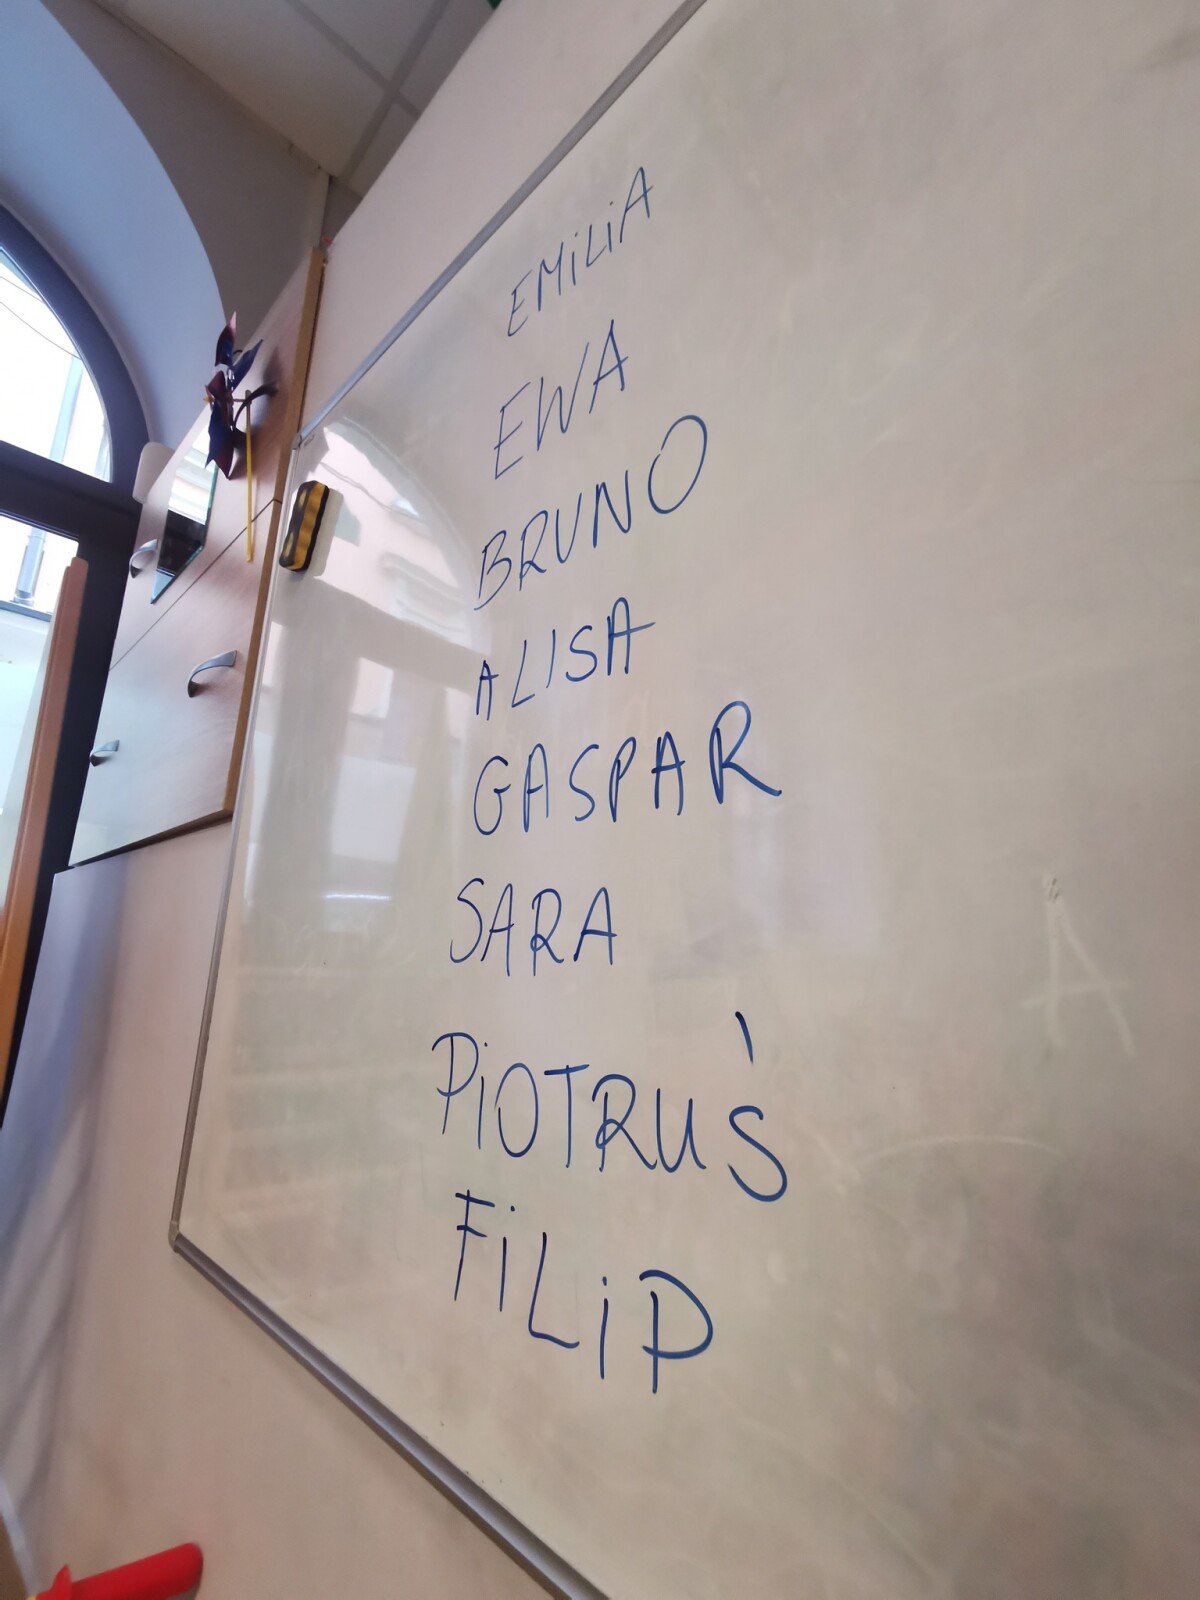 EMiLiA
EWA
BRUNO
ALISA
GASPAR
SARA
PiOTRUŚ
FiLiP